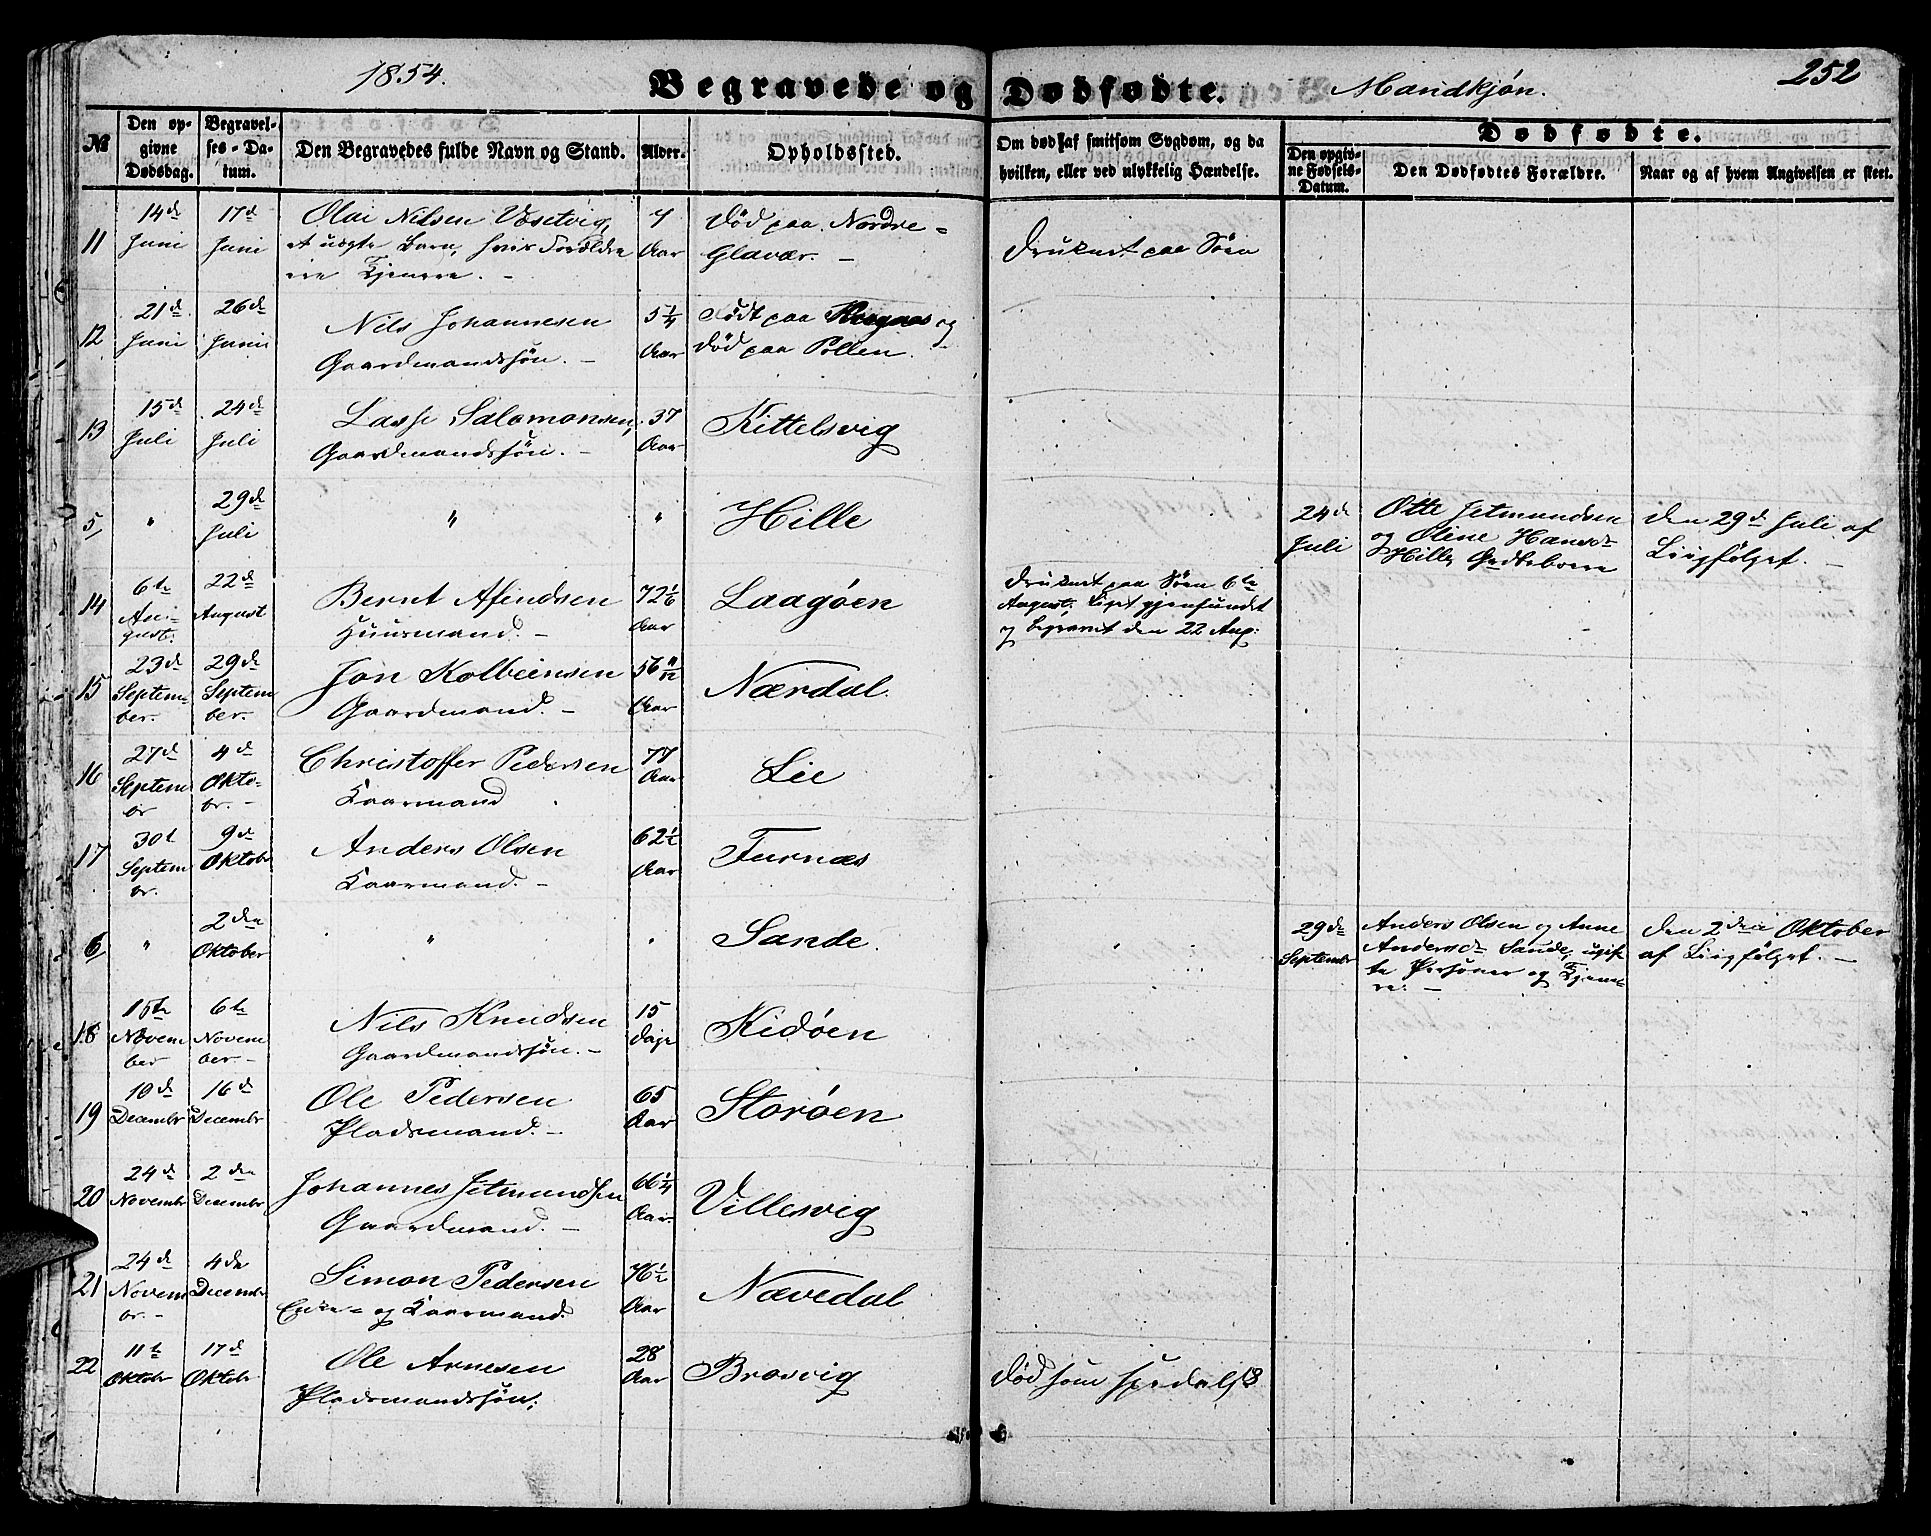 1854. Begravede og Dødfødte. Mandkjøn. 252
№ Den opgivne Dødsdag. Begravelses-Datum. Den Begravedes fulde Navn og Stand. Alder. Opholdssted. Om død af smitsom Sygdom, og da hvilken, eller ved ulykkelig Hændelse. Dødfødte.
Den opgivne Fødsels-Datum. Den Dødfødtes Forældre. Naar og af hvem Angivelsen er skeet.
11 14d Juni 17d Juni Olai Nilsen Vosetvig,
et uægte Barn, hvis Forældre
ere Tjenere. - Aar Død paa Nordre-
Glavær. - Druknet paa Søen
12 21d Juni 26d Juni Nils Johannesen
Gaardmandssøn. - 5 1/4 Aar Født paa og
død paa Pollen.
13 15d Juli 24d Juli Lasse Salomonsen,
Gaardmandssøn. - 37 Aar Kittelsvig
5 " 29de Juli " " Hille 24de Juli Otte Jetmundsen
og Oline Hansd.
Hille Den 29d Juli af
Liigfølget. -
14 6te August. 22d August Bernt Afindsen
Huusmand. - 72 1/6 Aar Laagøen Druknet paa Søen 6te
August. Liget gjenfundet
og begravet den 22 Aug:
15 23d September. 29de September. Jon Kolbeinsen
Gaardmand. - 56 11/12 Aar Nærdal.
16 27d Septembr 4d Oktobr. - Christoffer Pedersen
Kaarmand 77 Aar Lie
17 30t Septembr. 9d Oktobr Anders Olsen
Kaarmand. - 62 1/2 Aar Furnæs
6 " 2den Oktober " " Sande. 29de Septembr Anders Olsen og Anne
Andersd. Sande, ugifte
Personer og Tjenere. - Den 2den Oktober
af Liigfølget. -
18 15te November 6te November. - Nils Knudsen
Gaardmandssøn. - 15 Dage Kidøen
19 10d Decembr 16d Decembr Ole Pedersen
Pladsmand. - 65 Aar Storøen
20 24d Novembr 2den Decembr Johannes Jetmundsen
Gaardmand. - 66 1/4 Aar. Villesvig
21 24d Novembr. - 4de Decembr Simon Pedersen
Enke- og Kaarmand. 76 1/2 Aar Nævedal
22 11te Oktobr 17d Oktobr Ole Arnesen
Pladsmandssøn; 28 Aar Brovvig Død som spedalsk